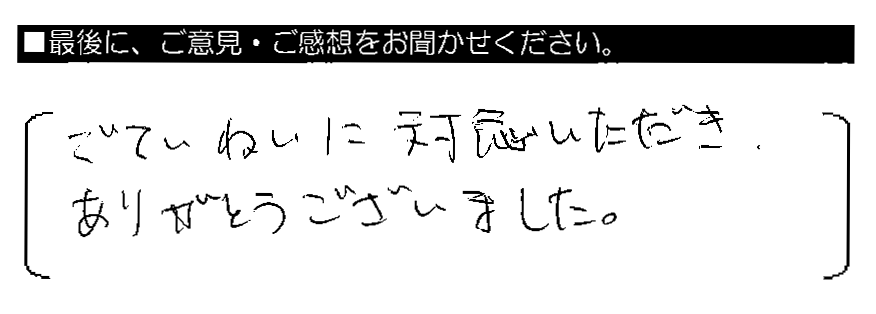 ■最後に、ご意見・ご感想をお聞かせください。
ごていねいに対応いただき、
ありがとうございました。